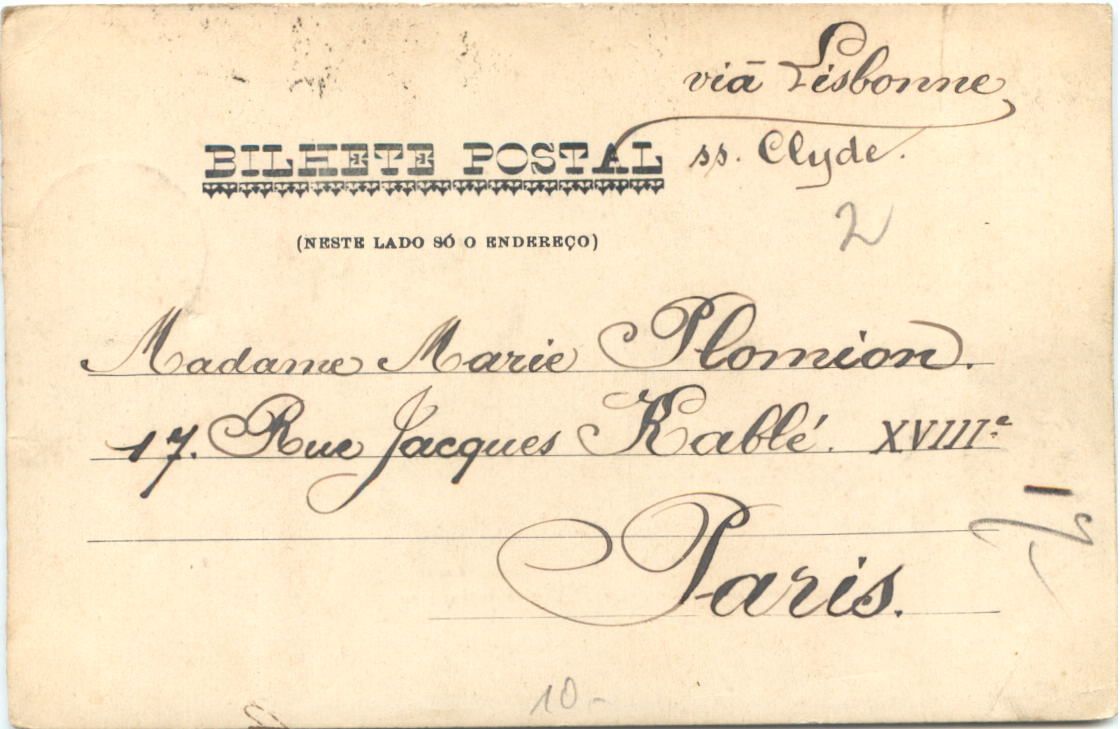 viā Lisbonne
BILHETE POSTAL
ss. Clyde.
(NESTE LADO SÓ O ENDEREÇO)
2
Madame Marie Plomion.
17. Rue Jacques Kablé. XVIIIᵉ
Paris.
10.-